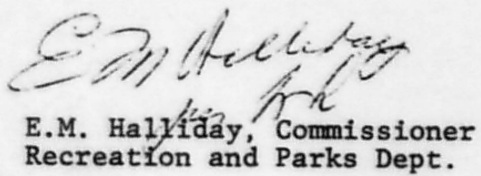 E M Halliday
per
E.M. Halliday, Commissioner
Recreation and Parks Dept.